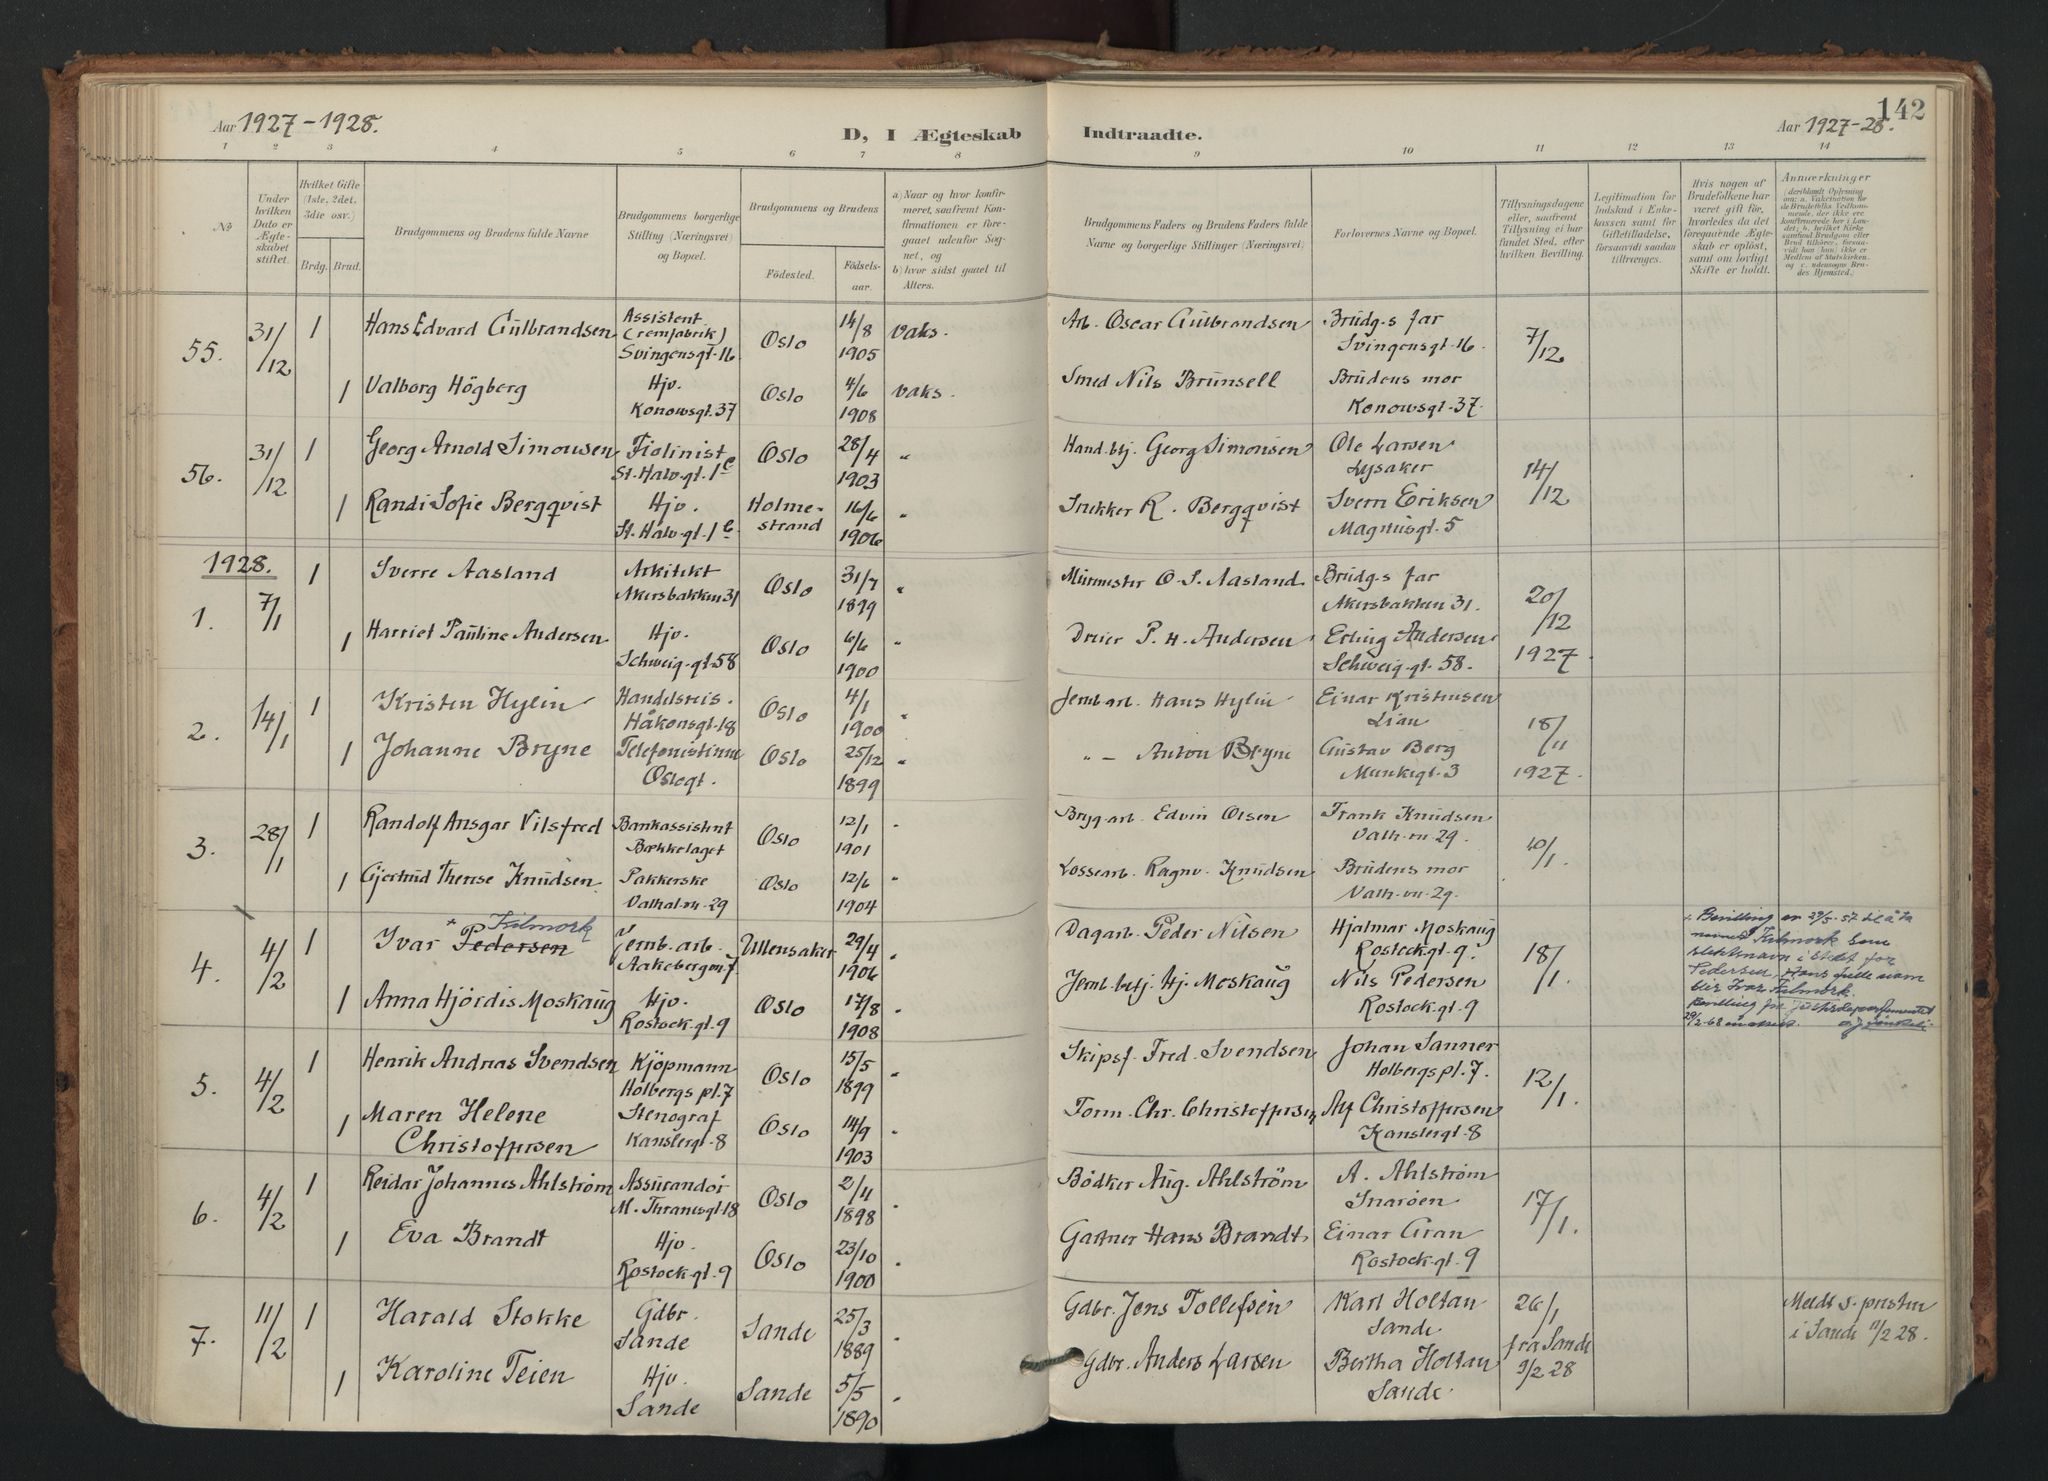 Aar 1927-1928.
D, I Ægteskab
Indtraadte.
142
Aar 1927-28.
1 2 3 4 5 6 7 8 9 10 11 12 13 14
No
Under hvilken Dato er Ægteskabet stiftet.
Hvilket Gifte (1ste, 2det, 3die osv.)
Brdg. Brud.
Brudgommens og Brudens fulde Navne
Brudgommens borgerlige Stilling (Næringsvei) og Bopæl.
Brudgommens og Brudens
Fødested. Fødselsaar.
a) Naar og hvor konfirmeret, saafremt Konfirmationen er foregaaet udenfor Sognet, og
b) hvor sidst gaaet til Alters.
Brudgommens Faders og Brudens Faders fulde Navne og borgerlige Stillinger (Næringsvei)
Forlovernes Navne og Bopæl.
Tillysningsdagene eller, saafremt Tillysning ei har fundet Sted, efter hvilken Bevilling.
Legitimation for Indskud i Enkekassen samt for Giftetilladelse, forsaavidt saadan tiltrænges.
Hvis nogen af Brudefolkene har været gift før, hvorledes da det foregaaende Ægteskab er opløst, samt om lovligt Skifte er holdt.
Anmærkninger
55. 31/12 1 Hans Edvard Gulbrandsen Assistent (remfabrik) Svingensgt. 16 Oslo 14/8 1905 vaks. Arb. Oscar Gulbrandsen Brudg.s far Svingensgt. 16 7/12
1 Valborg Högberg Hjv. Konowsgt. 37 Oslo 4/6 1908 vaks. Smed Nils Brunsell Brudens mor Konowsgt. 37.
56. 31/12 1 Georg Arnold Simonsen Fiolinist St. Halv. gt. 1c Oslo 28/4 1903 " Hand.btj. Georg Simonsen Ole Larsen Lysaker 14/12
1 Randi Sofie Bergqvist Hjv. St. Halv. gt. 1c Holmestrand 16/6 1906 " Trykker R. Bergqvist Sverre Eriksen Magnusgt. 5
1928.
1. 7/1 1 Sverre Aasland Arkitekt Akersbakken 31 Oslo 31/7 1899 " Murmester O. S. Aasland Brudg.s far Akersbakken 31. 20/12 1927
1 Harriet Pauline Andersen Hjv. Schweig. gt. 58 Oslo 6/6 1900 " Dreier P. H. Andersen Erling Andersen Schweig. gt. 58.
2. 14/1 1 Kristen Hylin Handelsreis. Håkonsgt. 18 Oslo 4/1 1900 " Jernb arb. Hans Hylin Einar Kristensen Lian 18/11 1927.
1 Johanne Bryne Telefonistinne Oslogt. Oslo 25/12 1899 " " - Anton Bryne Gustav Berg Munkegt. 3
3. 28/1 1 Randolf Ansgar Vilsfred Bankassistent Bækkelaget Oslo 12/1 1901 " Brygarb. Edvin Olsen Frank Knudsen Valh. vn. 29. 10/1.
1 Gjertrud Therese Knudsen Pakkerske Valhal. vn. 29 Oslo 12/6 1904 " Lossearb. Ragnv. Knudsen Brudens mor Valh. vn. 29.
4. 4/2 1 Ivar Pedersen Jernb. arb. Aakebergvn. 7 Ullensaker 29/4 1906 " Dagarb. Peder Nilsen Hjalmar Moskaug Rostockgt. 9. 18/1
1 Anna Hjördis Moskaug Hjv. Rostock. gt. 9 Oslo 17/8 1908 " Jernb.betj. Hj. Moskaug Nils Pedersen Rostock. gt. 9
Bevilling av 29/5-57 til å ta
som
slektsnavn i stedet for
Pedersen. Hans fulle navn
blir Ivar
5. 4/2 1 Henrik Andreas Svendsen Kjöpmann Holbergs pl. 7 Oslo 15/5 1899 " Skipsf. Fred. Svendsen Johan Sanner Holbergs pl. 7. 12/1.
1 Maren Helene Christoffersen Stenograf Kanslergt. 8 Oslo 14/9 1903 " Form. Chr. Christoffersen Alf Christoffersen Kanslergt. 8
6. 4/2 1 Reidar Johannes Ahlström Assurandör M. Thranesgt. 18 Oslo 2/11 1898 " Bödker Aug. Ahlström A. Ahlström Snaröen 17/1.
1 Eva Brandt Hjv. Rostock. gt. 9 Oslo 23/10 1900 " Gartner Hans Brandt Einar Gran Rostock. gt. 9
7. 11/2 1 Harald Stokke Gdbr. Sande Sande 25/3 1889 " Gdbr. Jens Tollefsen Karl Holtan Sande 26/1 fra Sande 9/2 28 Meldt s. presten i Sande 11/2 28.
1 Karoline Teien Hjv. Sande Sande 5/5 1890 " Gdbr. Anders Larsen Bertha Holtan Sande